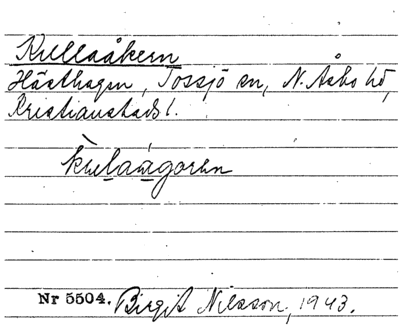 Kullaåkern
Hästhagen, Tossjö sn, N. Åsbo hd,
Kristianstads l.
kùlaágorən
Nr 5504. Birgit Nilsson, 1943.